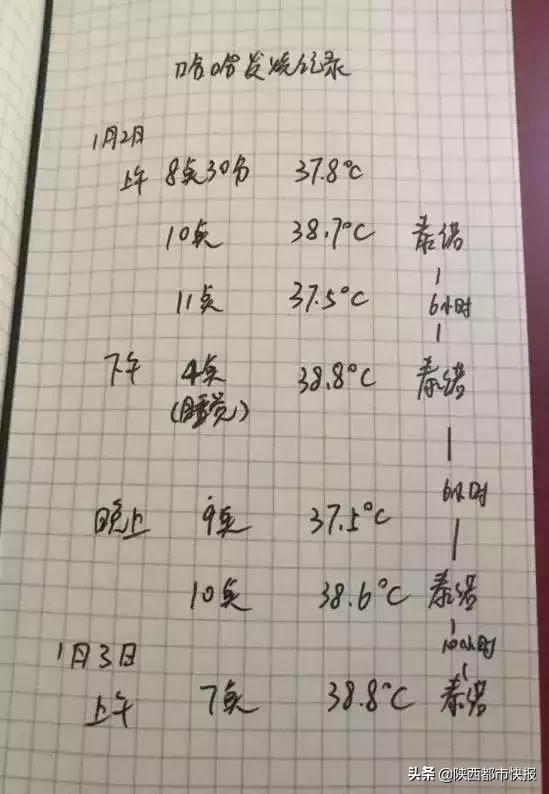 哈哈发烧记录
1月2日
上午 8点30分 37.8°C
10点 38.7°C 泰诺
6小时
11点 37.5°C
下午 4点 38.8°C 泰诺
(睡觉)
6小时
晚上 9点 37.5°C
10点 38.6°C 泰诺
10小时
1月3日
上午 7点 38.8°C 泰诺
头条 @陕西都市快报